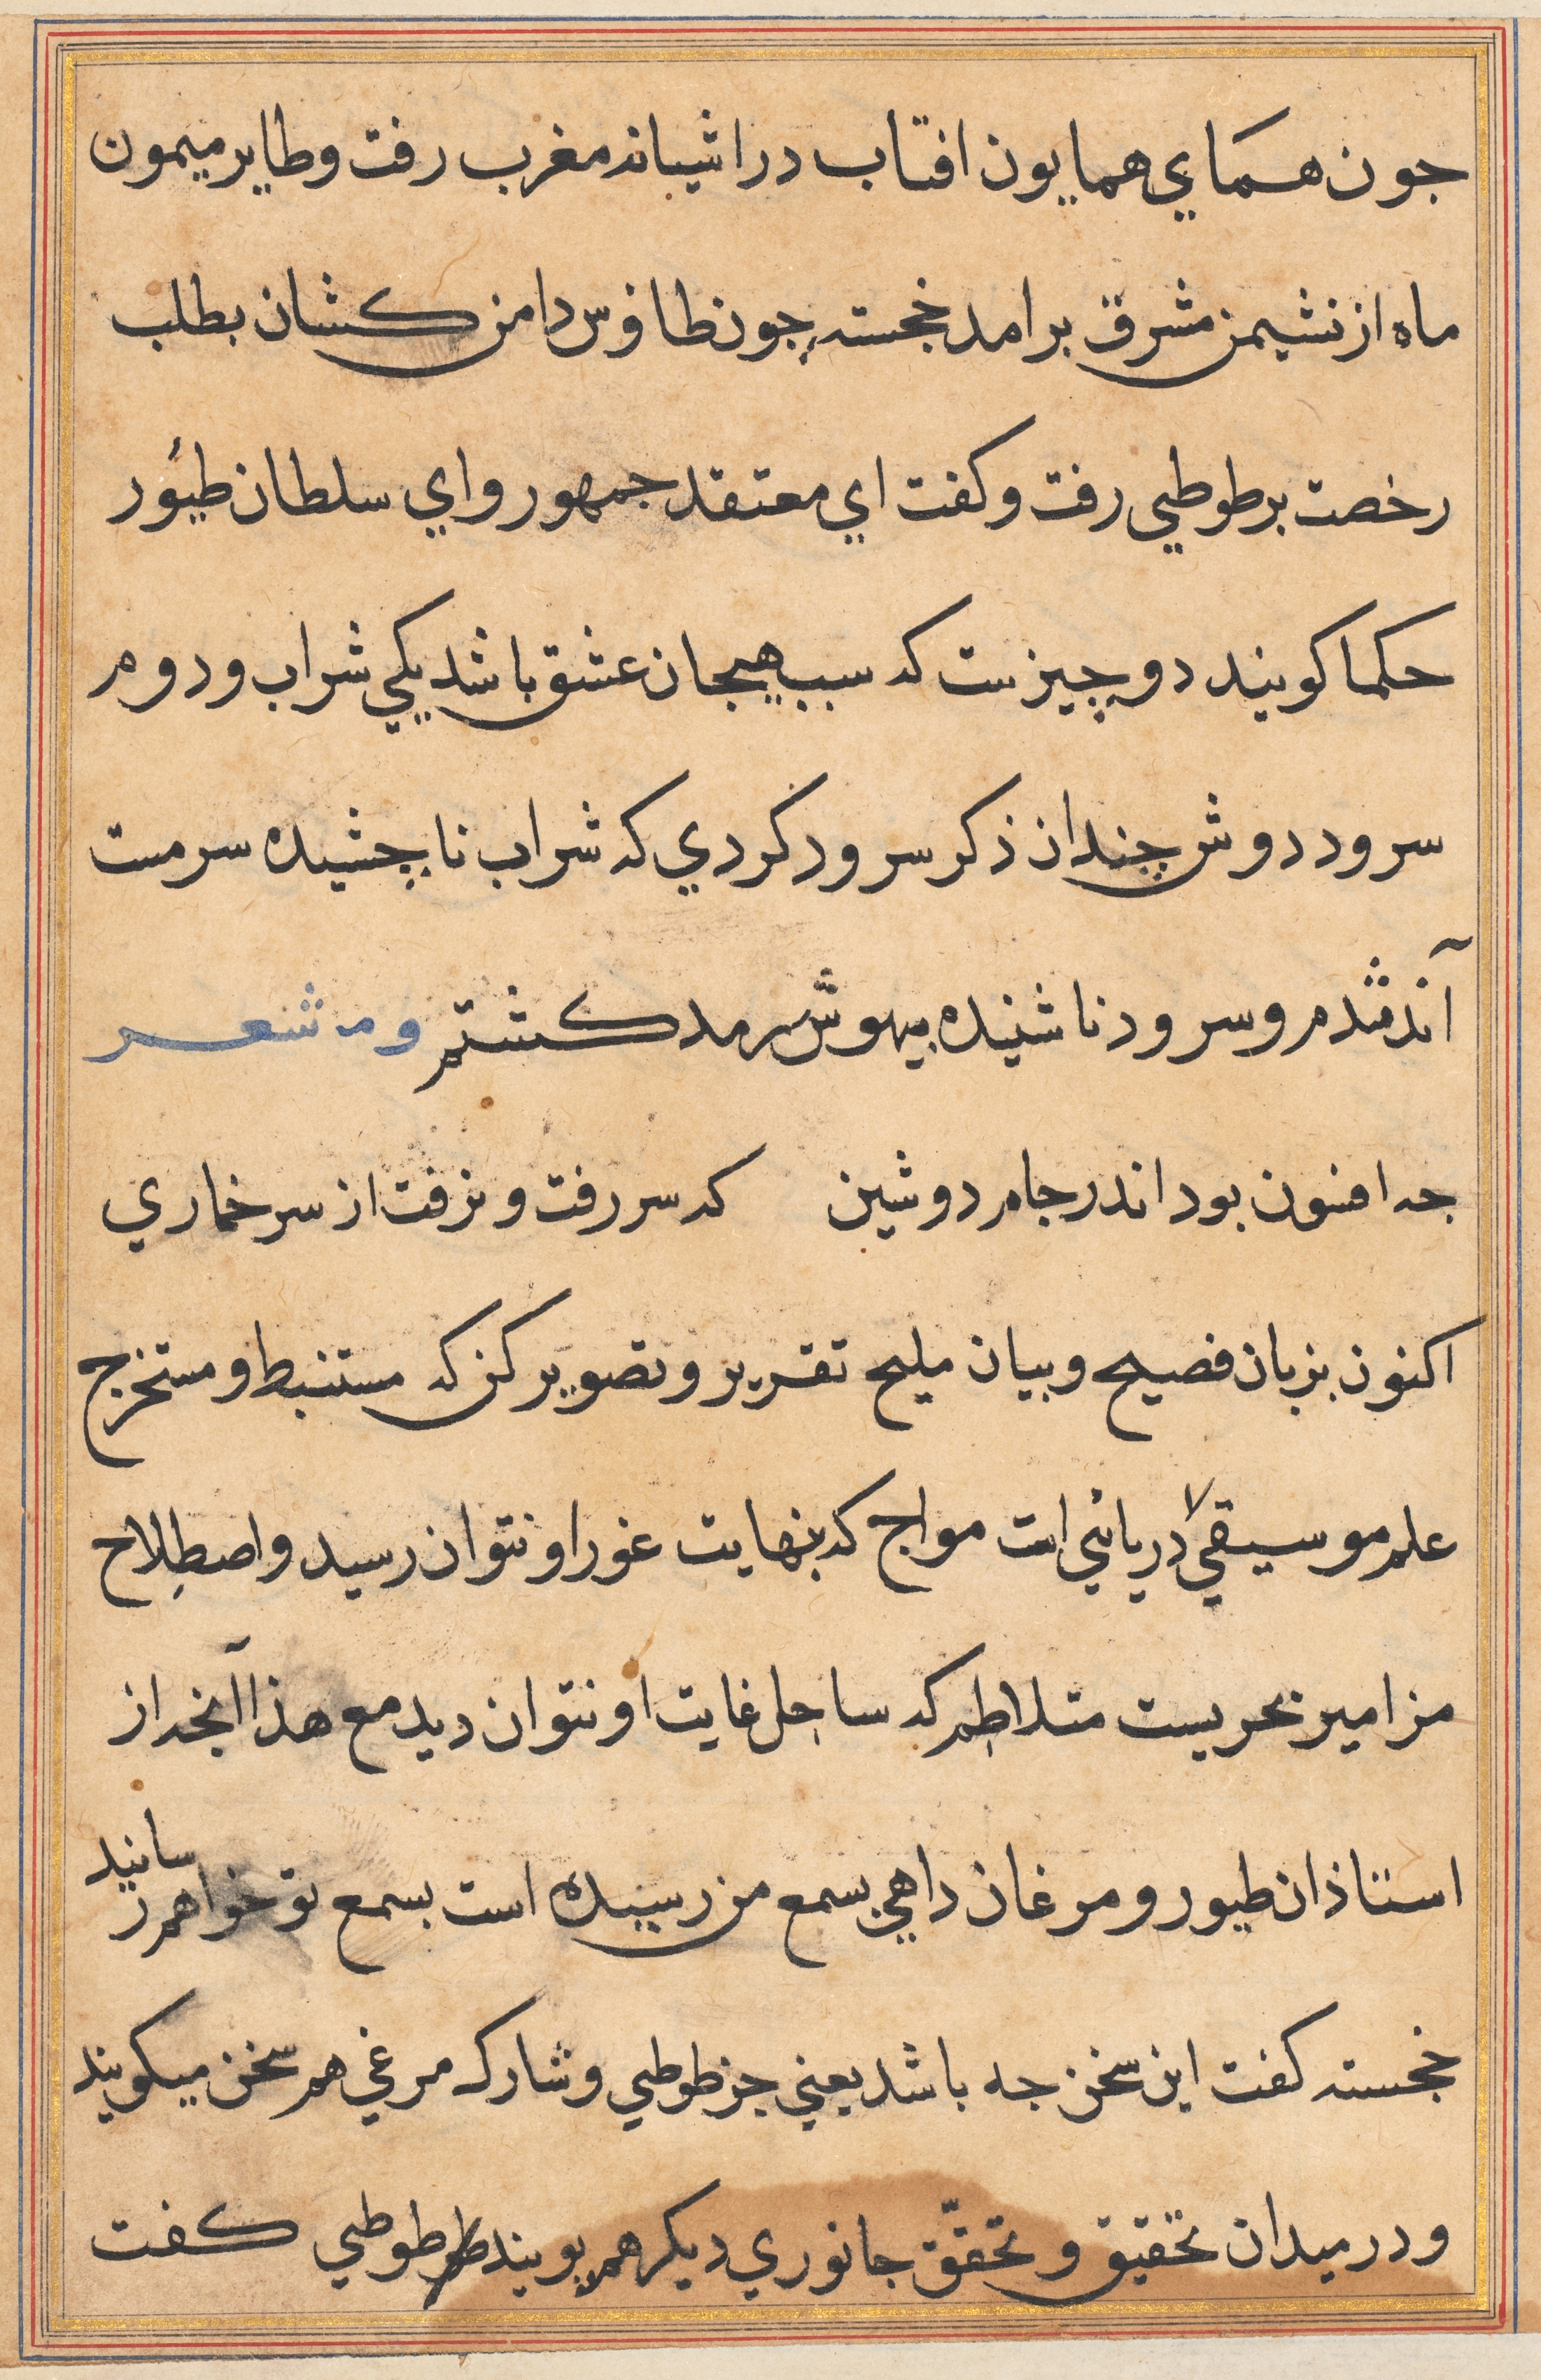 جون همَاي همايون افتاب در اشيانه مغرب رفت و طاير ميمون
ماه از نشيمن مشرق برامد خجسته چون طاؤس دامن كشان بطلب
رخصت بر طوطي رفت و كفت اي معتقد جمهور و اي سلطان طيُور
حكما كويند دو چيزست كه سبب هيجان عشق باشد يكي شراب و دوم
سرود دوش چندان ذكر سرود كردي كه شراب ناچشيده سرمست
شدم و سرود ناشنيده بيهوش كشتم شعر
جه افسون بود اندر جام دوشين كه سر رفت و نرفت از سر خماري
اكنون بزبان فصيح و بيان مليح تقرير و تصوير كن كه مستنبط و مستخرج
علم موسيقي كفت دريائي است مواج كه بنهايت غور او نتوان رسيد و اصطِلاح
مزامير بحريست متلاطِم كه ساحِل غايت او نتوان ديد مع هذا آنجه از
استاذان طيور و مرغان داهي بسمع من رسيده است بسمع تو خواهم رسانيد
خجسته كفت اين سخن جه باشد يعني جز طوطي و شارك مرغي هم سخن ميكويند
و در ميدان تحقيق و تحقّق جانوري ديكر هم پويند طوطي كفت